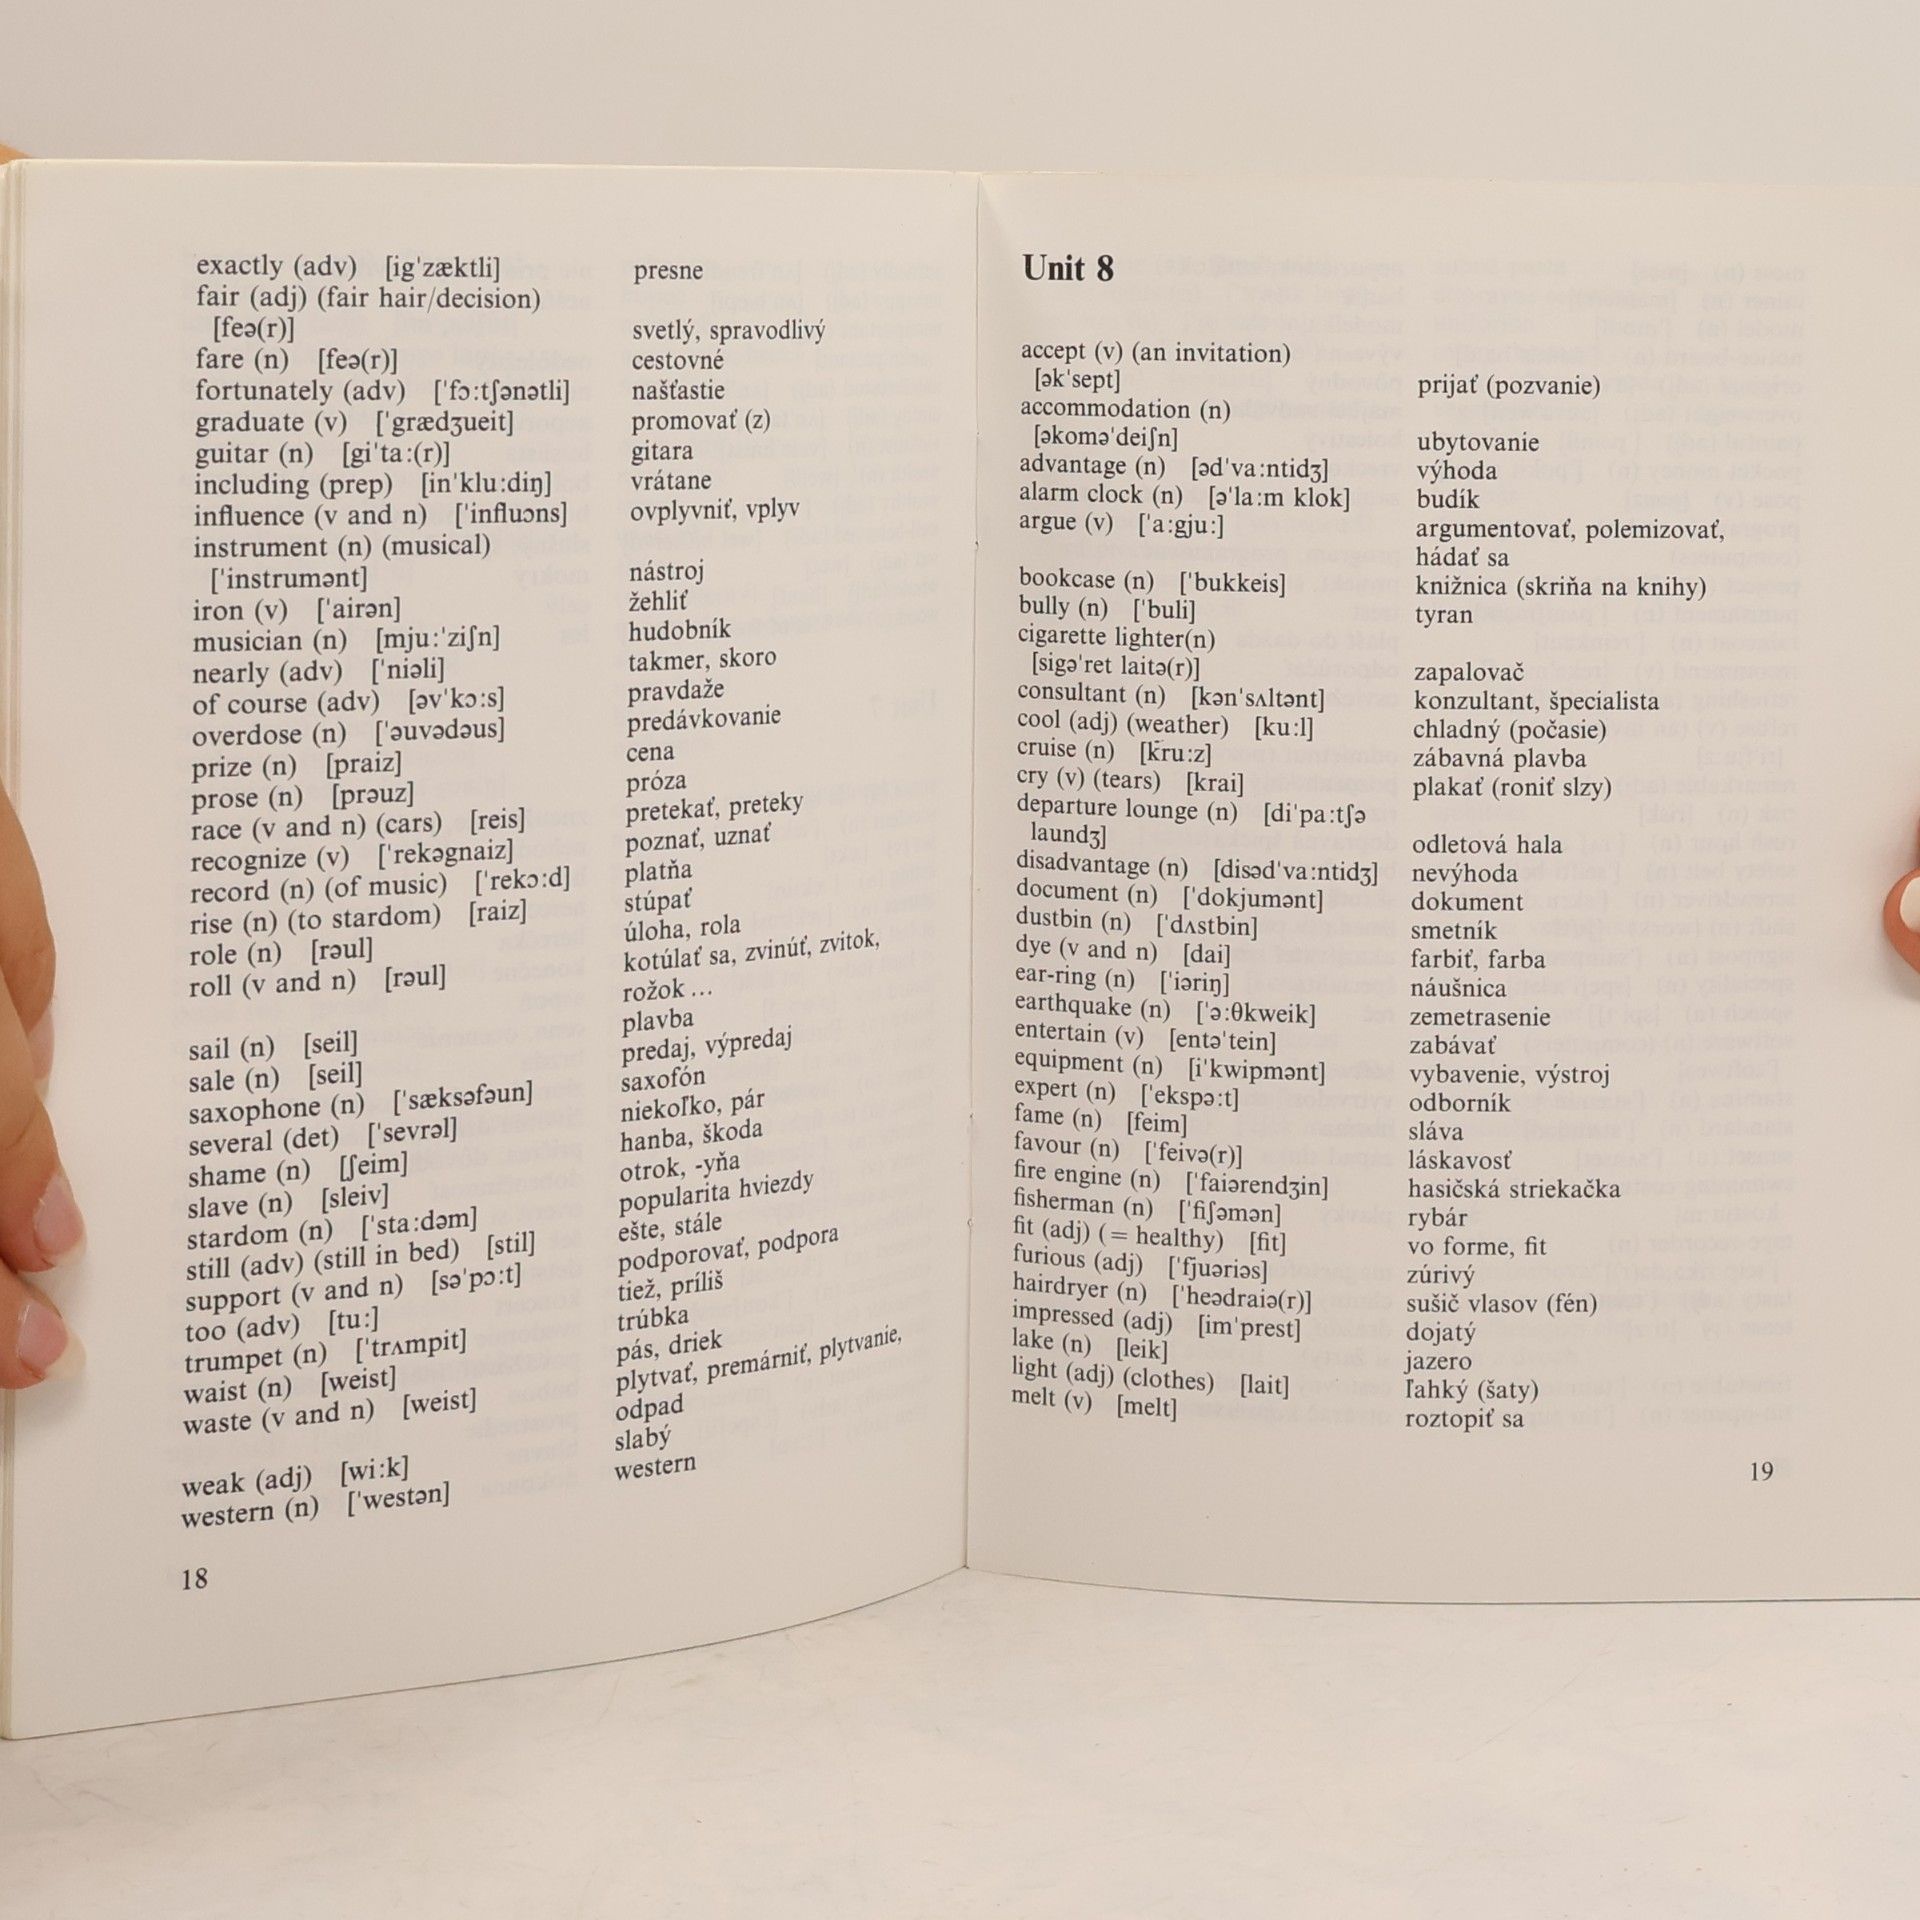 exactly (adv) [igˈzæktli] presne
fair (adj) (fair hair/decision)
[feə(r)] svetlý, spravodlivý
fare (n) [feə(r)] cestovné
fortunately (adv) [ˈfɔːtʃənətli] našťastie
graduate (v) [ˈgrædʒueit] promovať (z)
guitar (n) [giˈtaː(r)] gitara
including (prep) [inˈkluːdiŋ] vrátane
influence (v and n) [ˈinfluɔns] ovplyvniť, vplyv
instrument (n) (musical)
[ˈinstrumənt] nástroj
iron (v) [ˈairən] žehliť
musician (n) [mjuːˈziʃn] hudobník
nearly (adv) [ˈniəli] takmer, skoro
of course (adv) [əvˈkɔːs] pravdaže
overdose (n) [ˈəuvədəus] predávkovanie
prize (n) [praiz] cena
prose (n) [prəuz] próza
race (v and n) (cars) [reis] pretekať, preteky
recognize (v) [ˈrekəgnaiz] poznať, uznať
record (n) (of music) [ˈrekɔːd] platňa
rise (n) (to stardom) [raiz] stúpať
role (n) [rəul] úloha, rola
roll (v and n) [rəul] kotúlať sa, zvinúť, zvitok,
rožok ...
sail (n) [seil] plavba
sale (n) [seil] predaj, výpredaj
saxophone (n) [ˈsæksəfəun] saxofón
several (det) [ˈsevrəl] niekoľko, pár
shame (n) [ʃeim] hanba, škoda
slave (n) [sleiv] otrok, -yňa
stardom (n) [ˈstaːdəm] popularita hviezdy
still (adv) (still in bed) [stil] ešte, stále
support (v and n) [səˈpɔːt] podporovať, podpora
too (adv) [tuː] tiež, príliš
trumpet (n) [ˈtrʌmpit] trúbka
waist (n) [weist] pás, driek
waste (v and n) [weist] plytvať, premárniť, plytvanie,
odpad
weak (adj) [wiːk] slabý
western (n) [ˈwestən] western
18
Unit 8
accept (v) (an invitation)
[əkˈsept] prijať (pozvanie)
accommodation (n)
[əkoməˈdeiʃn] ubytovanie
advantage (n) [ədˈvaːntidʒ] výhoda
alarm clock (n) [əˈlaːm klok] budík
argue (v) [ˈaːgjuː] argumentovať, polemizovať,
hádať sa
bookcase (n) [ˈbukkeis] knižnica (skriňa na knihy)
bully (n) [ˈbuli] tyran
cigarette lighter(n)
[sigəˈret laitə(r)] zapalovač
consultant (n) [kənˈsʌltənt] konzultant, špecialista
cool (adj) (weather) [kuːl] chladný (počasie)
cruise (n) [kruːz] zábavná plavba
cry (v) (tears) [krai] plakať (roniť slzy)
departure lounge (n) [diˈpaːtʃə
laundʒ] odletová hala
disadvantage (n) [disədˈvaːntidʒ] nevýhoda
document (n) [ˈdokjumənt] dokument
dustbin (n) [ˈdʌstbin] smetník
dye (v and n) [dai] farbiť, farba
ear-ring (n) [ˈiəriŋ] náušnica
earthquake (n) [ˈəːθkweik] zemetrasenie
entertain (v) [entəˈtein] zabávať
equipment (n) [iˈkwipmənt] vybavenie, výstroj
expert (n) [ˈekspəːt] odborník
fame (n) [feim] sláva
favour (n) [ˈfeivə(r)] láskavosť
fire engine (n) [ˈfaiərendʒin] hasičská striekačka
fisherman (n) [ˈfiʃəmən] rybár
fit (adj) (= healthy) [fit] vo forme, fit
furious (adj) [ˈfjuəriəs] zúrivý
hairdryer (n) [ˈheədraiə(r)] sušič vlasov (fén)
impressed (adj) [imˈprest] dojatý
lake (n) [leik] jazero
light (adj) (clothes) [lait] ľahký (šaty)
melt (v) [melt] roztopiť sa
19